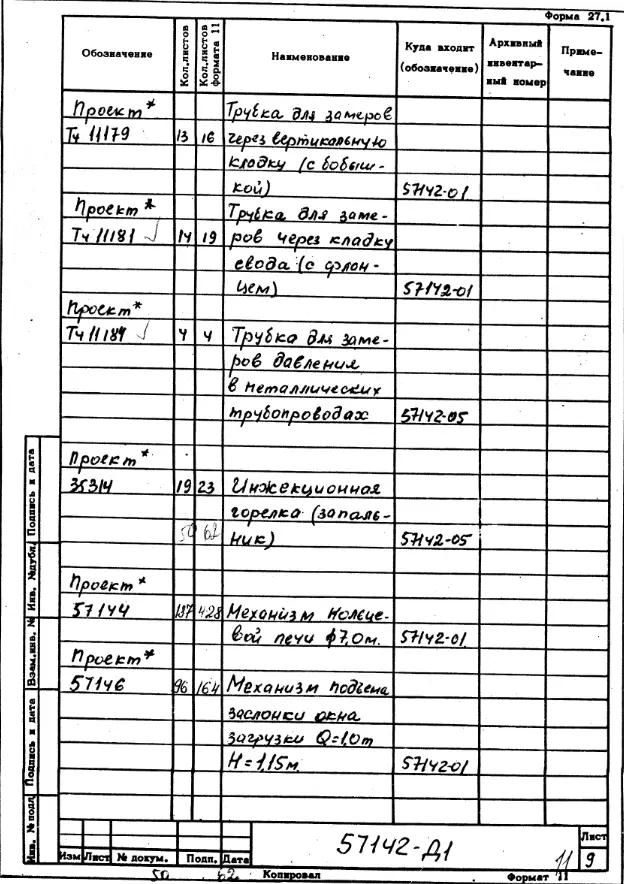 Форма 27.1
Обозначение Кол.листов Кол.листов формата 11 Наименование Куда входит (обозначение) Архивный инвентар- ный номер Приме- чание
Проект* Трубка для замеров
Тч 11179 13 16 через вертикальную
кладку (с бобыш-
кой) 57142-01
Проект* Трубка для заме-
Тч 11181 14 19 ров через кладку
свода (с флан-
цем) 57142-01
Проект*
Тч 11184 4 4 Трубка для заме-
ров давления
в металлических
трубопроводах 57142-05
Проект*
35314 19 23 Инжекционная
горелка (запаль-
50 62 ник) 57142-05
Проект*
57144 137 428 Механизм кольце-
вой печи ф7,0м. 57142-01
Проект*
57146 96 164 Механизм подъема
заслонки окна
загрузки Q=1,0т
H=1,15м. 57142-01
Инв. № подл. Подпись и дата Взам.инв. № Инв. №дубл. Подпись и дата
57142-Д1
Лист
11 9
Изм Лист № докум. Подп. Дата
50 62 Копировал Формат 11